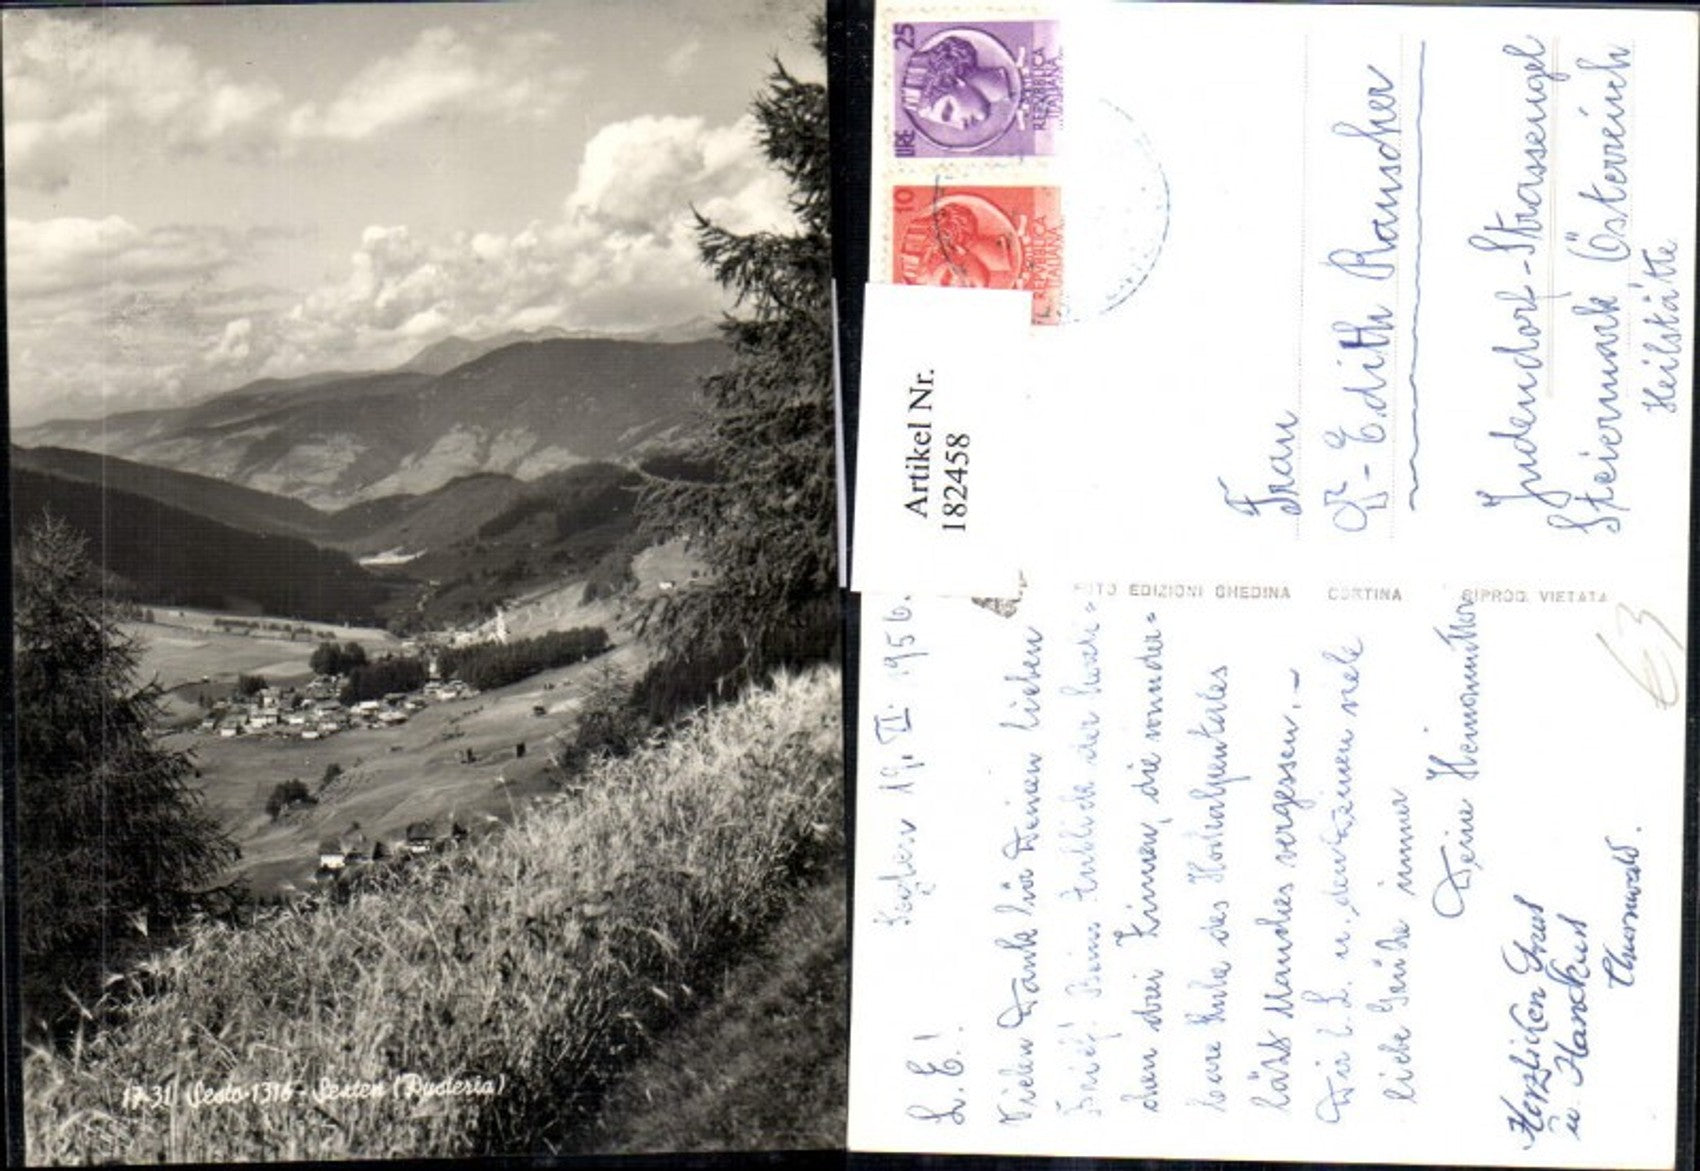 17-31 Sesto-1316 - Sexten (Pusteria)
25
LIRE
REPVBBLICA
ITALIANA
10
REPVBBLICA
ITALIANA
Artikel Nr.
182458
Frau
Edith Rauscher
Judendorf-Strassengel
Steiermark Österreich
Heilstätte
FOTO EDIZIONI GHEDINA CORTINA RIPROD. VIETATA
€3
19. VI. 1956.
L. E.!
Vielen Dank für Deinen lieben
Brief! Beim Anblick der herrli=
chen drei Zinnen, die wunder=
bare Ruhe des Hochalpentales
lässt Manches vergessen. –
Dir l. E. u. den Deinen viele
liebe Grüße immer
Deine
Herzlichen Gruß
u. Handkuss